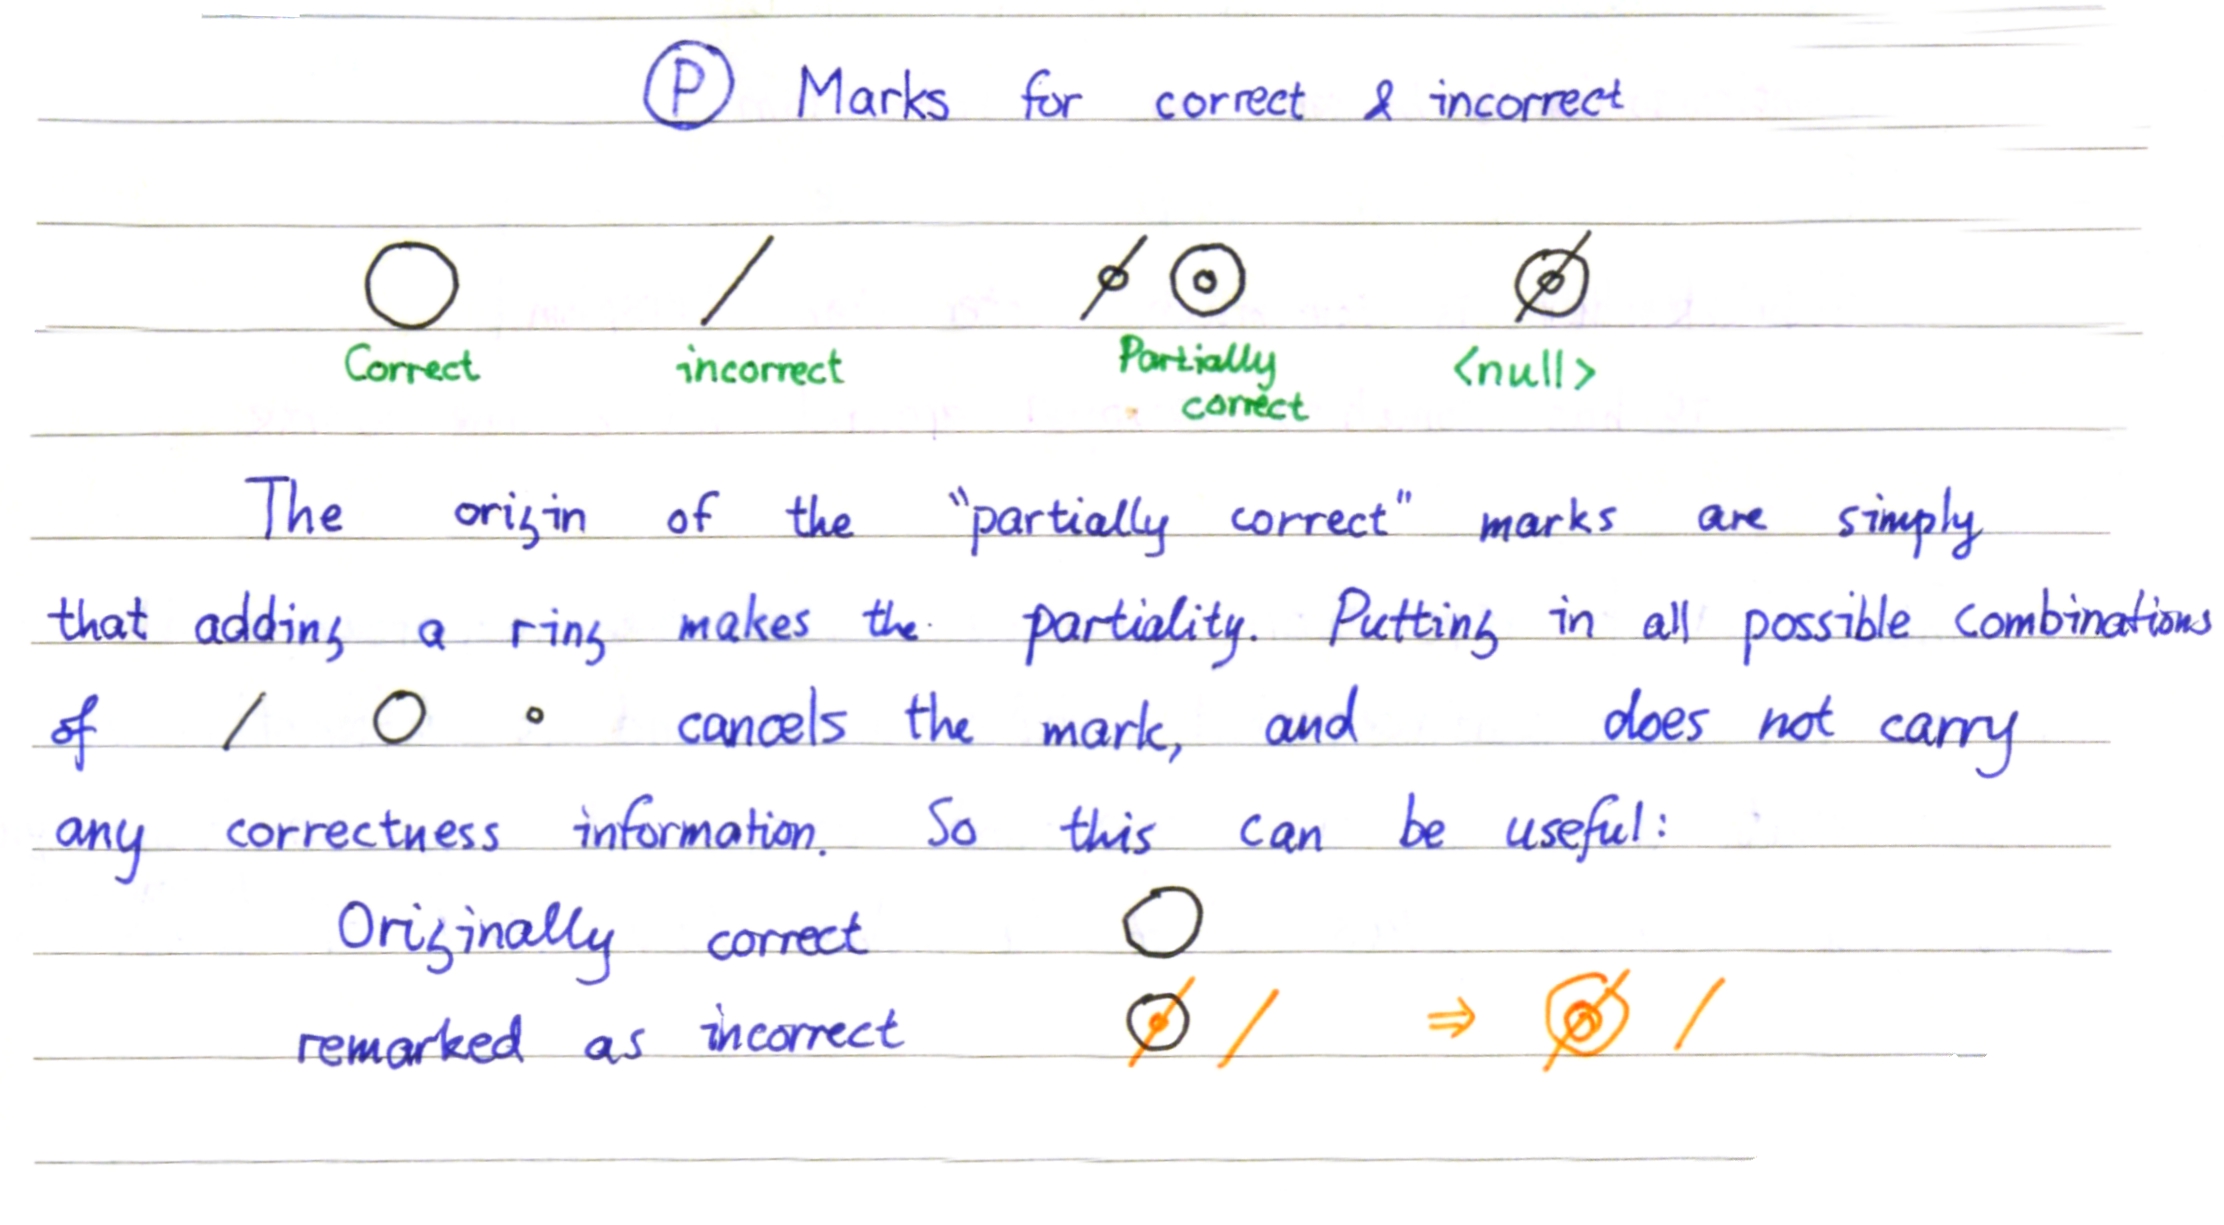 P Marks for correct & incorrect
Correct incorrect Partially correct <null>
The origin of the "partially correct" marks are simply
that adding a ring makes the partiality. Putting in all possible combinations
of / ○ ∘ cancels the mark, and does not carry
any correctness information. So this can be useful:
Originally correct
remarked as incorrect ⇒